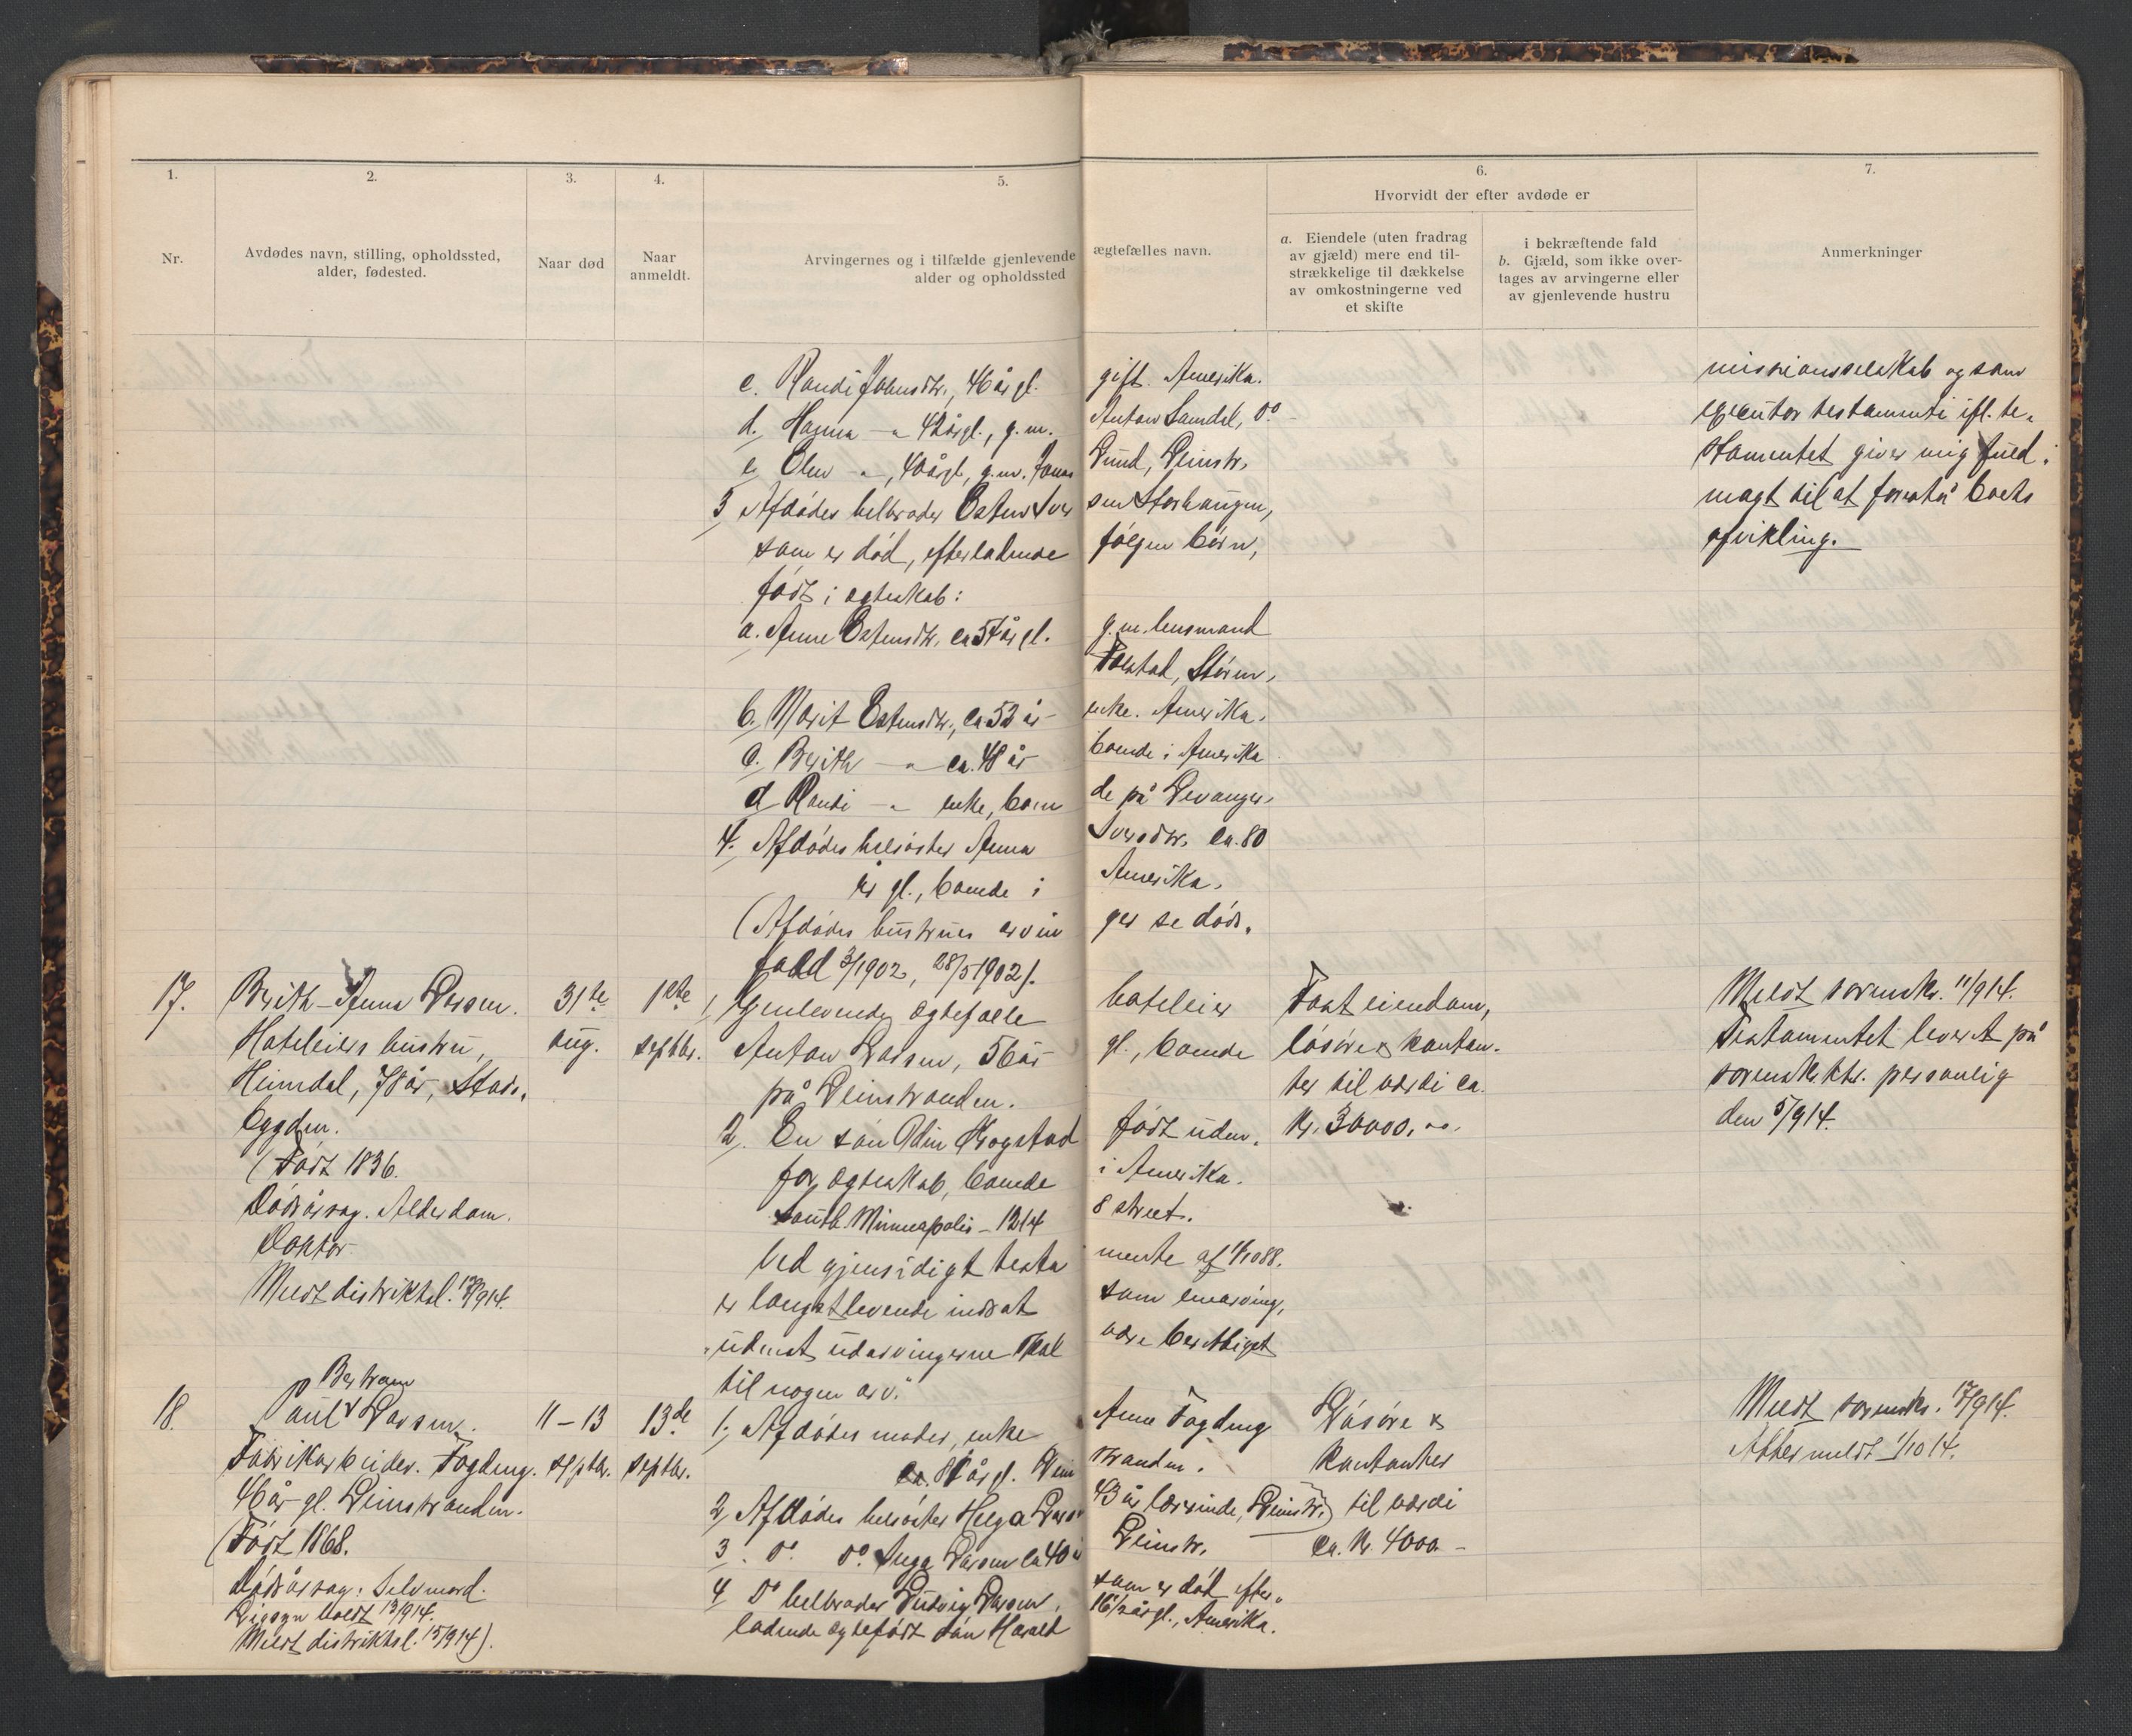 1.
2.
3.
4.
5.
6.
7.
Hvorvidt der efter avdøde er
Nr.
Avdødes navn, stilling, opholdssted,
alder, fødested.
Naar død
Naar
anmeldt.
Arvingernes og i tilfælde gjenlevende ægtefælles navn.
alder og opholdssted
a. Eiendele (uten fradrag
av gjæld) mere end til-
strækkelige til dækkelse
av omkostningerne ved
et skifte
i bekræftende fald
b. Gjæld, som ikke over-
tages av arvingerne eller
av gjenlevende hustru
Anmerkninger
c. Randi Johnsdtr., 46 år gl. gift. Amerika.
d. Hanna —"— 42 årgl., g.m. Anton Lamdal, do —
e Elen —"—, 40 årgl, g.m. Jonas Lund, Leinstr.
3 Afdødes helbroder Esten Iversen Storhaugen,
som er død, efterladende følgen børn,
født i ægteskab:
a. Anne Estensdtr. ca 57 år gl. g.m. lensmand
Folstad, Støren,
b. Marit Estensdtr., ca 52 år — enke. Amerika,
c. Berith —"— ca. 48 år boende i Amerika
d Randi —"— enke, boende på Levanger,
4. Afdødes helsøster Anna Iversdtr. ca. 80
år gl., boende i Amerika.
(Afdødes hustrues arvinger se døds-
fald 3/1902, 28/5 1902).
missionsselskab og som
executor testamenti ifl. te-
stamentet giver mig fuld-
magt til at forestå boets
afvikling.
17.
Berith-Anna Larsen.
Hoteleiers hustru,
Heimdal, 78 år, Stads-
bygden.
(Født 1836.
Dødsårsag. Alderdom.
Doktor
Meldt distriktsl. 12/9 14.
31te
aug.
1ste
septbr.
1, Gjenlevende ægtefælle hoteleier
Anton Larsen, 56 år gl., boende
på Leinstranden.
2. En søn Odin Krogstad født uden-
for ægteskab, boende i Amerika.
South Minneapolis — 1214 8 street.
Ved gjensidigt testamente af 1/10 88.
er længstlevende indsat som enearving,
"udenat udarvingerne skal være berettiget
til nogen arv."
Fast eiendom,
løsøre & kontan-
ter til værdi ca.
kr. 30000,00.
Meldt sorenskr. 11/9 14.
Testamentet leveret på
sorenskr.ktr. personlig
den 5/9 14.
18.
Bertram
Paul Larsen.
Fabrikarbeider. Fageng.
46 år gl. Leinstranden.
(Født 1868.
Dødsårsag. Selvmord.
Ligsyn holdt 13/9 14.
Meldt distriktsl. 15/9 14).
11–13
septbr.
13de
septbr.
1, Afdødes moder, enke Anne
ca. 81 år gl. Leinstranden.
2, Afdødes helsøster Helga Larsen 43 år lærerinde, Leinstr.
3. do do Inga Larsen ca 40 år Leinstr.
4 do helbroder Ludvig Larsen, som er død efter-
ladende ægtefødt søn Harald 16 1/2 årgl., Amerika.
Løsøre &
kontanter
til værdi
ca. kr. 4000 —
Meldt sorenskr. 17/9 14.
Attermeldt 1/10 14.